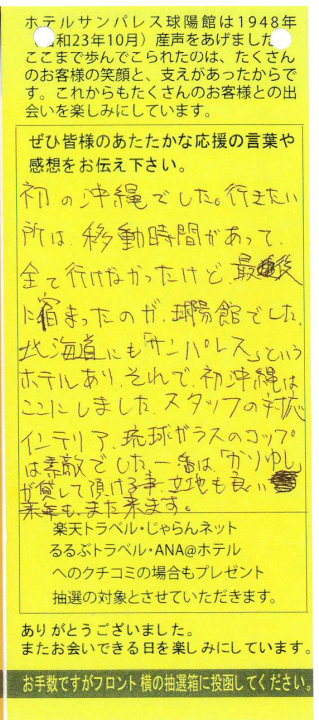 ホテルサンパレス球陽館は1948年
（昭和23年10月）産声をあげました。
ここまで歩んでこられたのは、たくさん
のお客様の笑顔と、支えがあったからで
す。これからもたくさんのお客様との出
会いを楽しみにしています。
ぜひ皆様のあたたかな応援の言葉や
感想をお伝え下さい。
初の沖縄でした。行きたい
所は、移動時間があって、
全て行けなかったけど、最後
に宿まったのが、球陽館でした。
北海道にも「サンパレス」という
ホテルあり、それで、初沖縄は
ここにしました。スタッフの対応
インテリア、琉球ガラスのコップ
は素敵でした。一番は、「かりゆし」
が貸して頂ける事、立地も良い
来年も、また来ます。
楽天トラベル・じゃらんネット
るるぶトラベル・ANA@ホテル
へのクチコミの場合もプレゼント
抽選の対象とさせていただきます。
ありがとうございました。
またお会いできる日を楽しみにしています。
お手数ですがフロント横の抽選箱に投函してください。